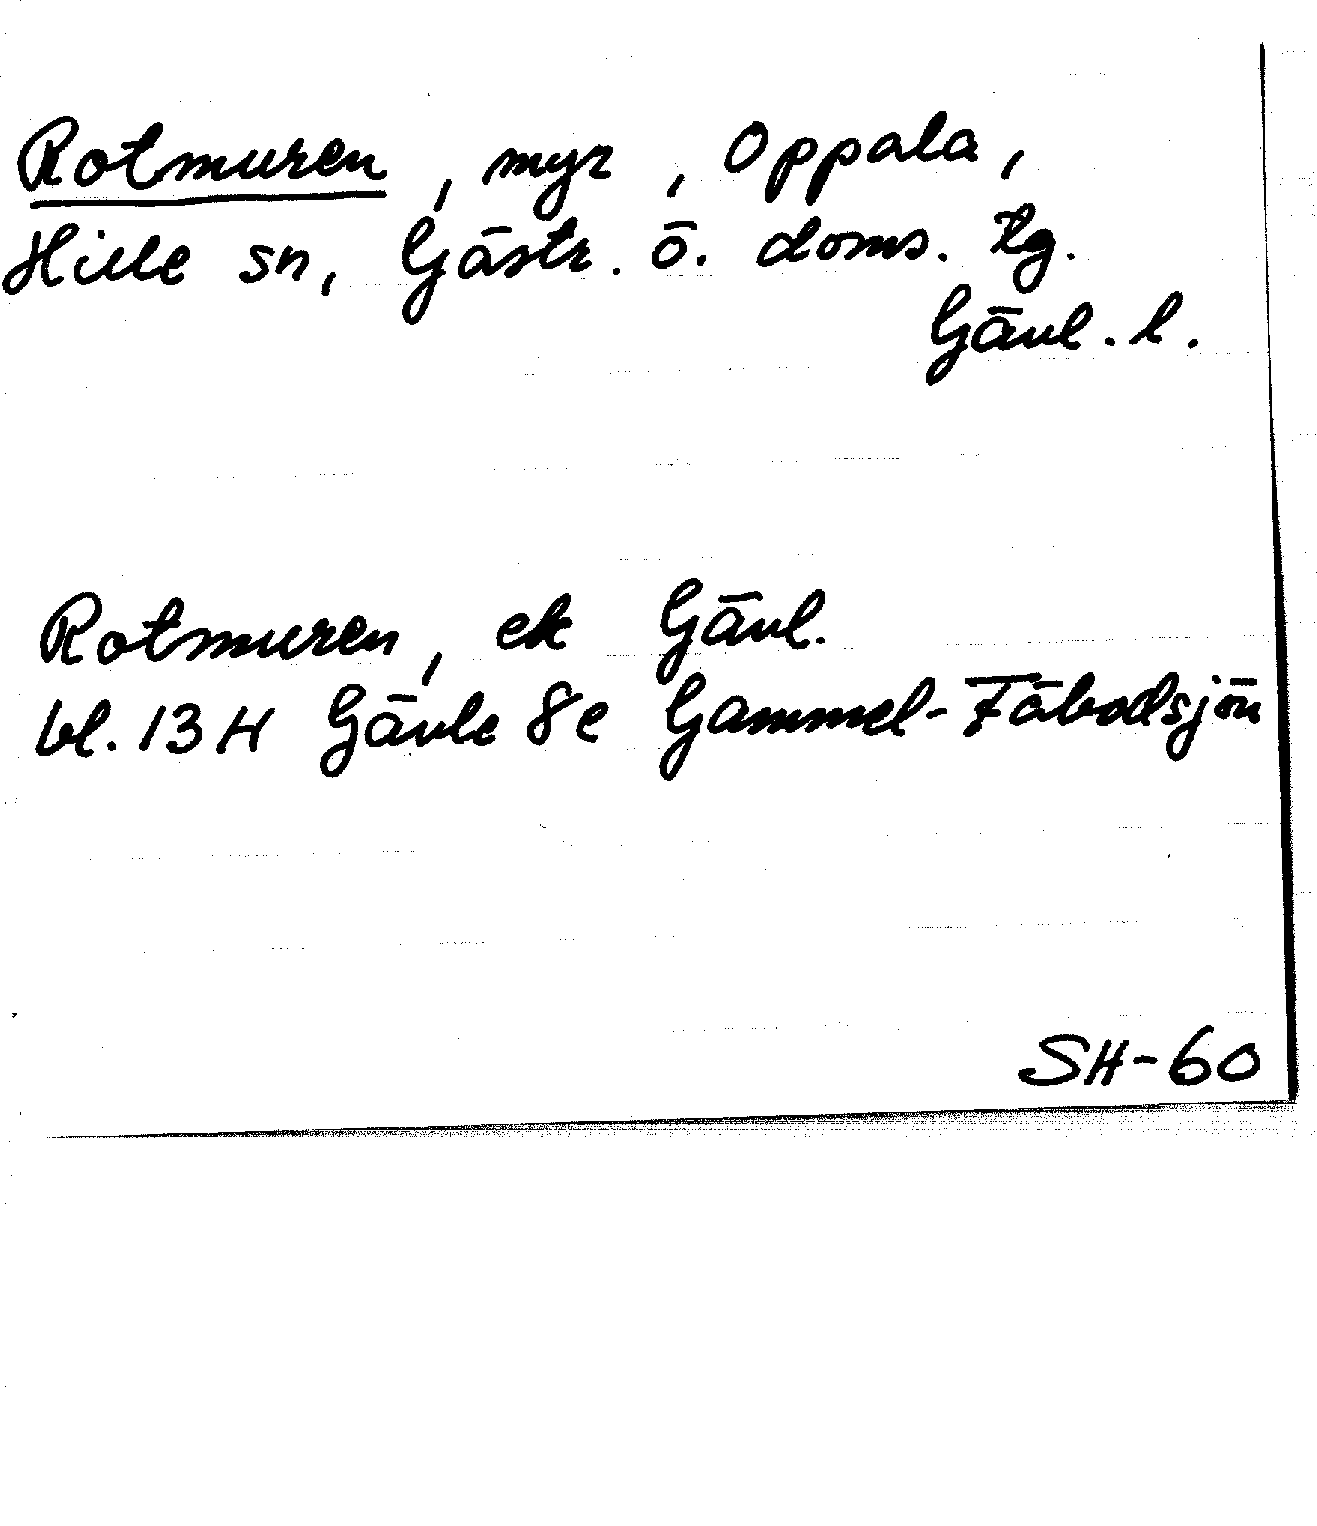 Rotmuren, myr, Oppala,
Hille sn, Gästr. ö. doms. tg.
Gävl. l.
Rotmuren, ek Gävl.
bl. 13 H Gävle 8e Gammel-Fäbodsjön
SH-60